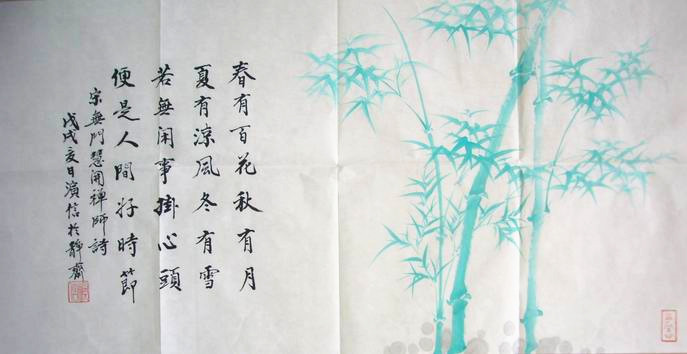 春有百花秋有月
夏有涼風冬有雪
若無閑事掛心頭
便是人間好時節
宗無門慧開禪師詩
戊戌亥日濱信於靜齋